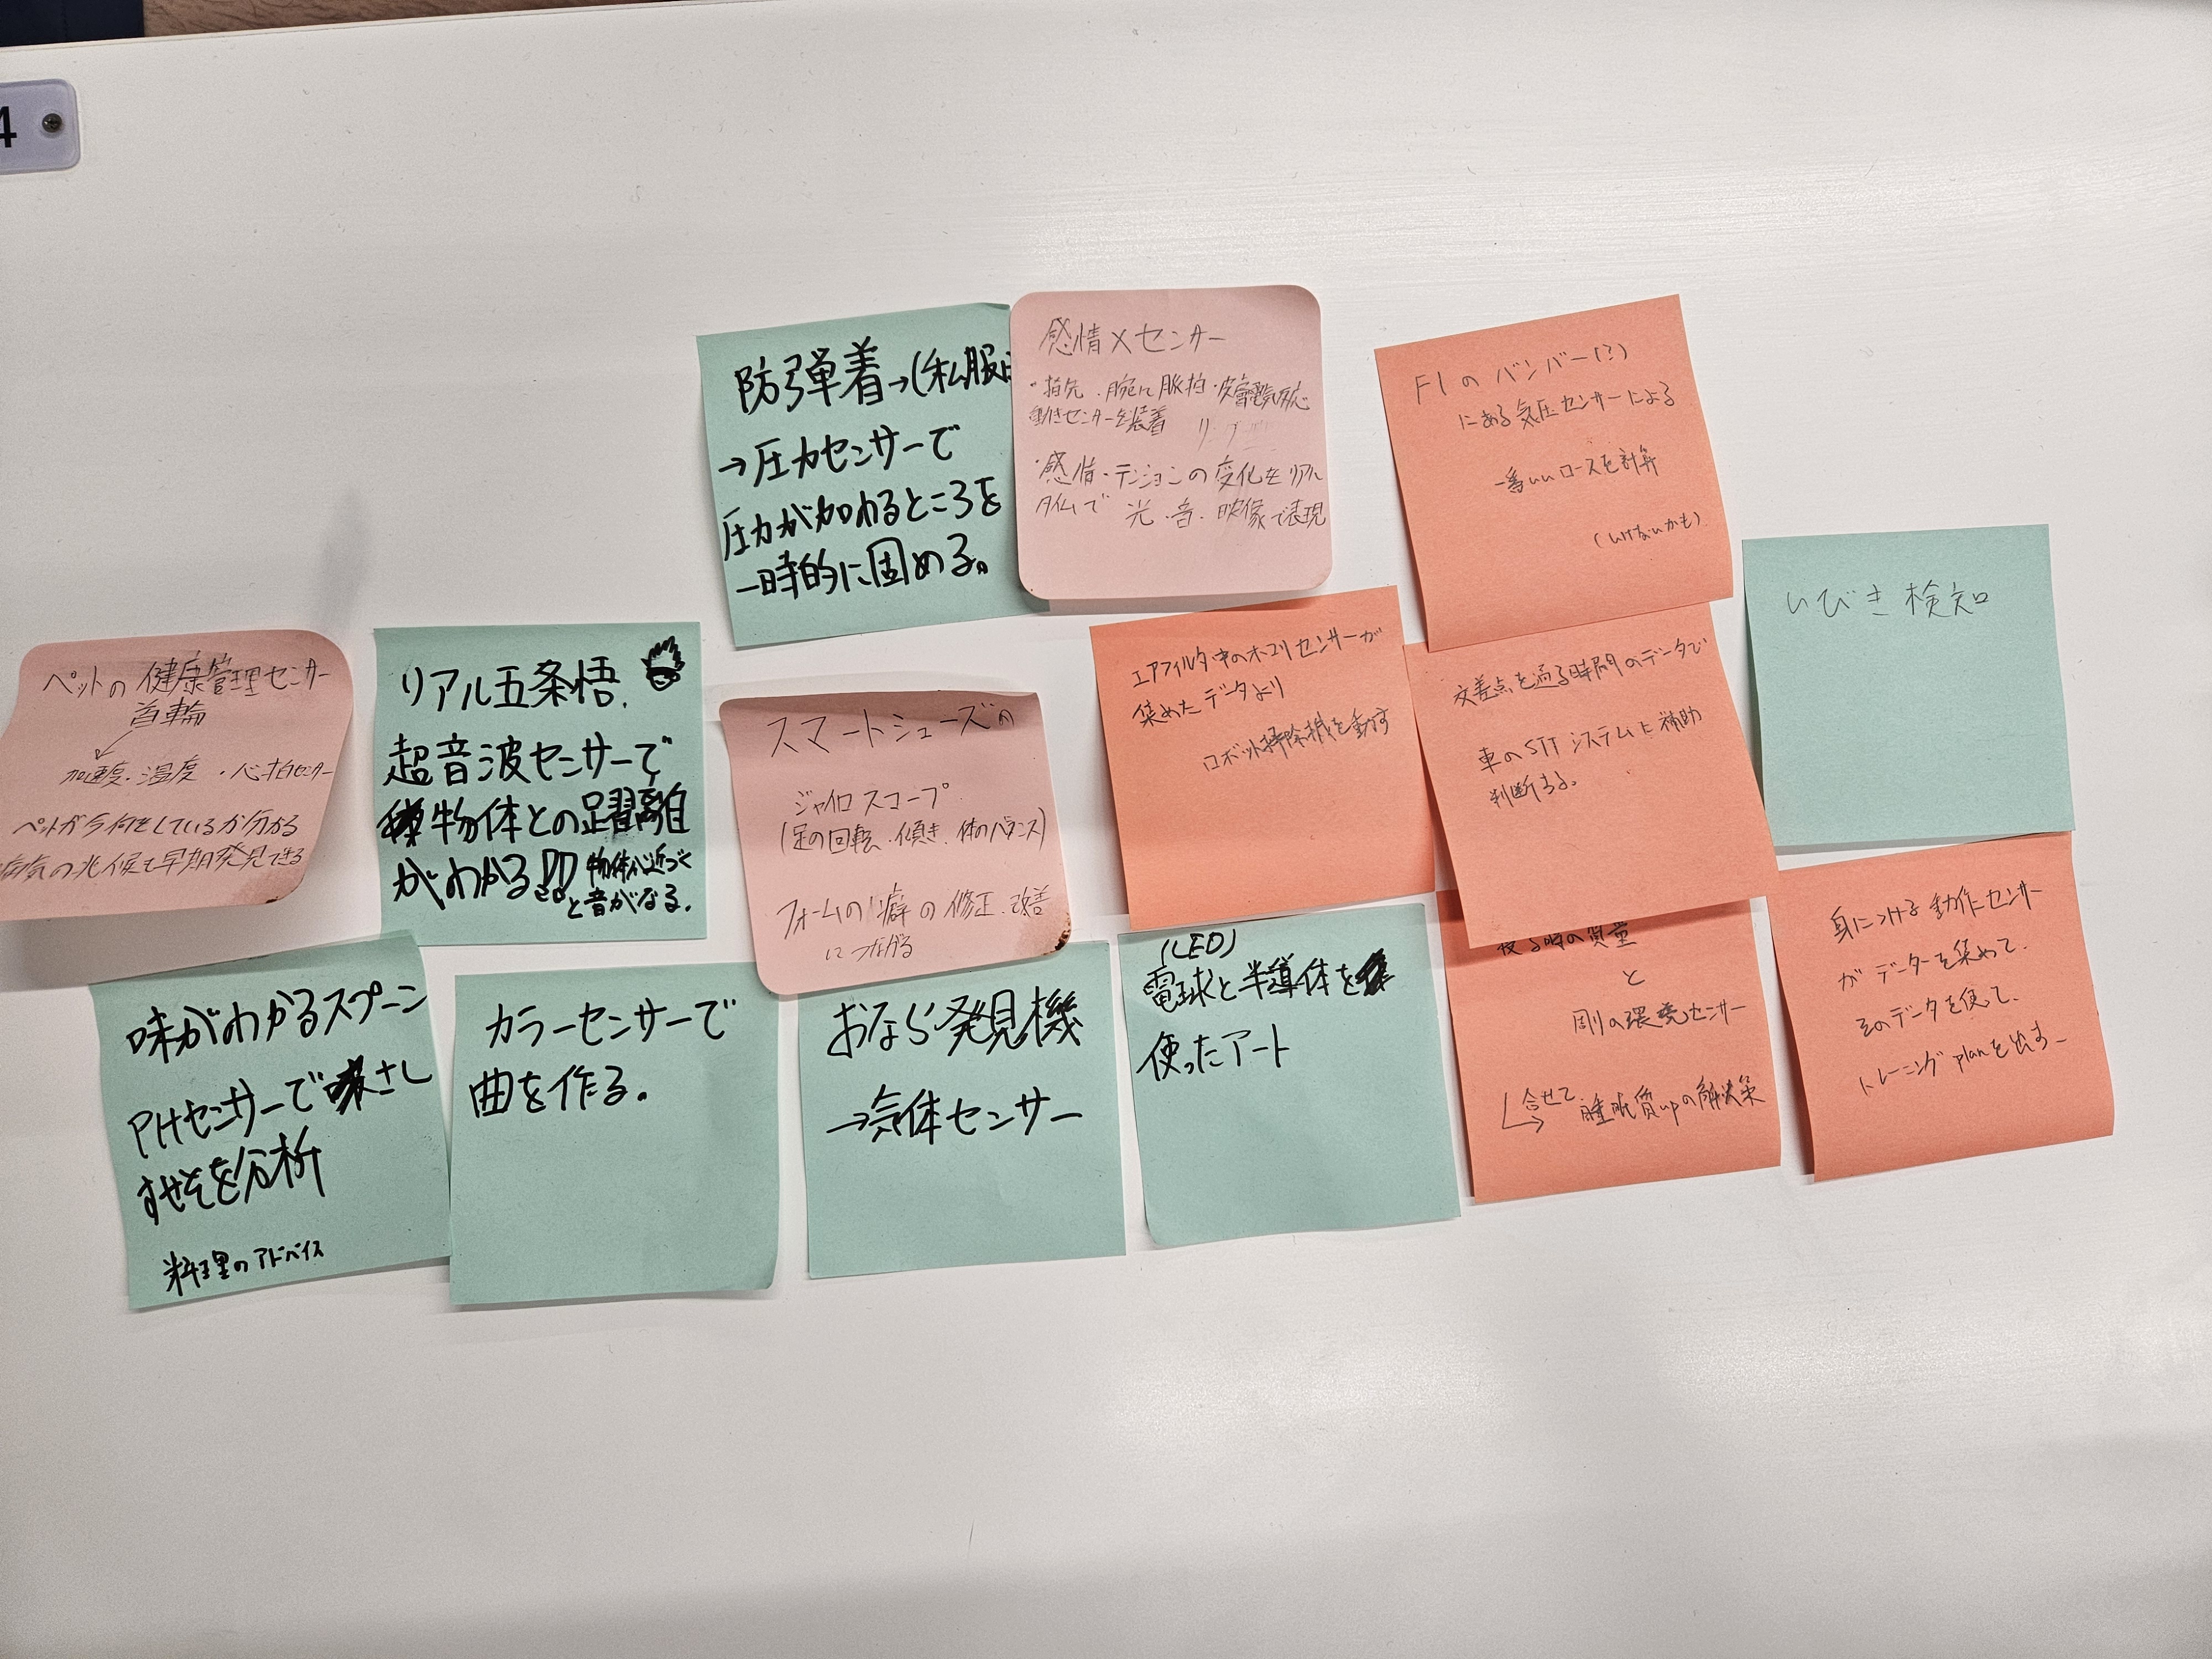 4
防弾着→(私服
→圧力センサーで
圧力が加わるところを
一時的に固める。
感情×センサー
・指先、腕に脈拍・皮膚電気反応
動きセンサーを装着
・感情・テンションの変化をリアル
タイムで 光・音・映像で表現
F1のバンパー(?)
にある気圧センサーによる
一番いいコースを計算
(いけないかも)
いびき検知
ペットの健康管理センサー
首輪
加速度・温度・心拍センサー
ペットが今何をしているか分かる
病気の兆候を早期発見できる
リアル五条悟.
超音波センサーで
物体との距離
がわかる!!
物体が近づく
と音がなる.
スマートシューズの
ジャイロスコープ
(足の回転、傾き、体のバランス)
フォームの癖の修正、改善
につながる
エアフィルタ中のホコリセンサーが
集めたデータより
ロボット掃除機を動す
交差点を通る時間のデータで
車のSTTシステムに補助
判断する。
味がわかるスプーン
PHセンサーで さし
すせそを分析
料理のアドバイス
カラーセンサーで
曲を作る。
おなら発見機
→気体センサー
(LED)
電球と半導体を
使ったアート
と
周りの環境センサー
合せて
睡眠質upの解決策
身につける動作センサー
がデーターを集めて、
そのデータを使って、
トレーニングplanを出す